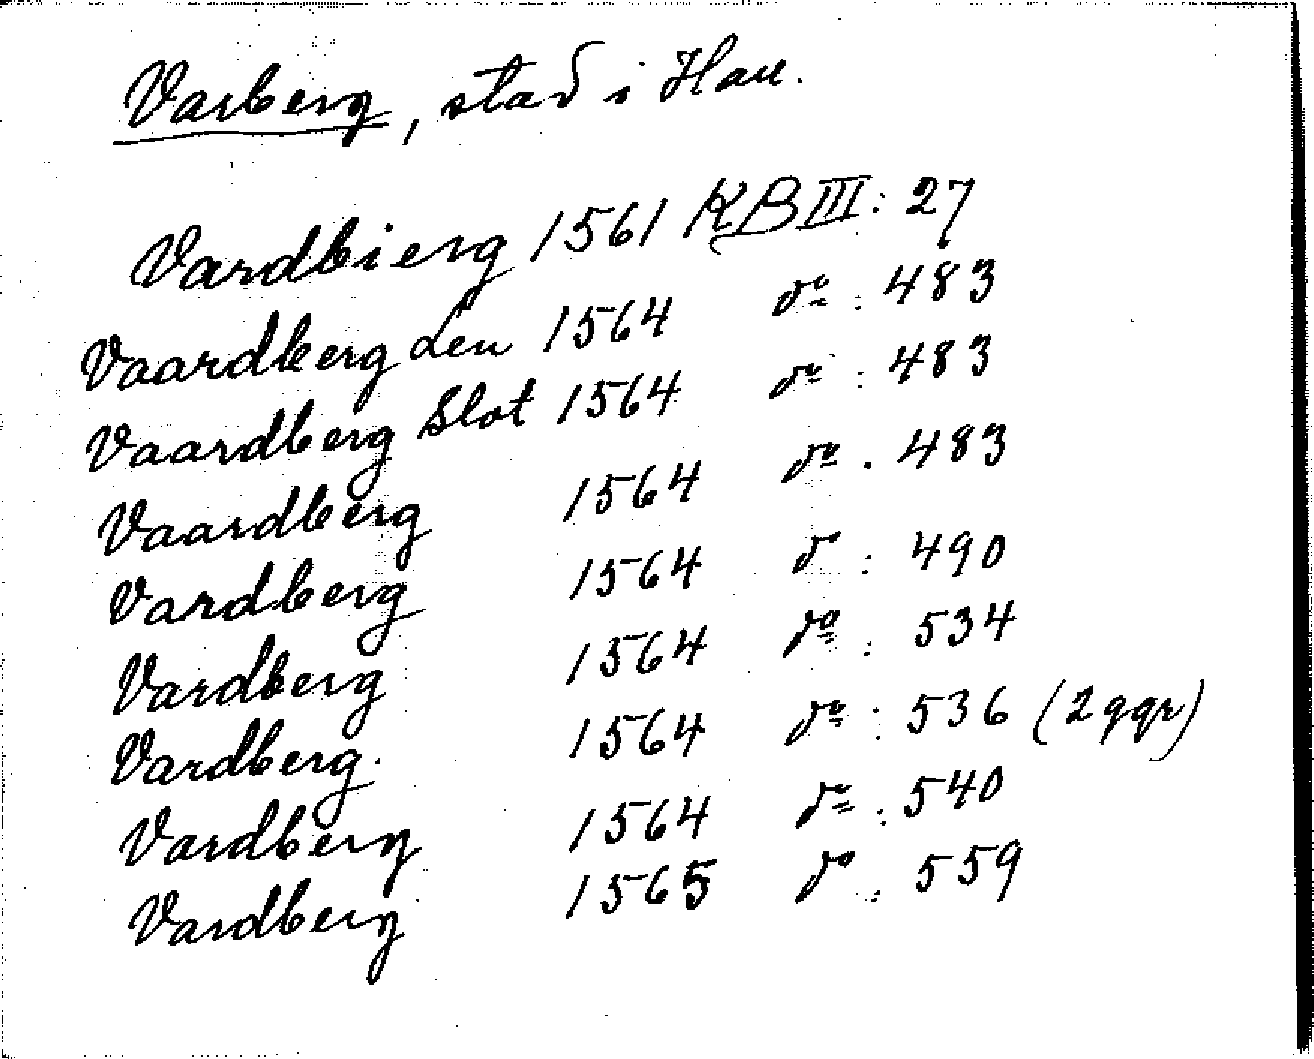 Varberg, stad i Hall.
Vardbierg 1561 KB III: 27
Vaardberg Len 1564 do : 483
Vaardberg Slot 1564 do : 483
Vaardberg 1564 do . 483
Vardberg 1564 do : 490
Vardberg 1564 do : 534
Vardberg. 1564 do : 536 (2 ggr)
Vardberg 1564 do : 540
Vardberg 1565 do : 559